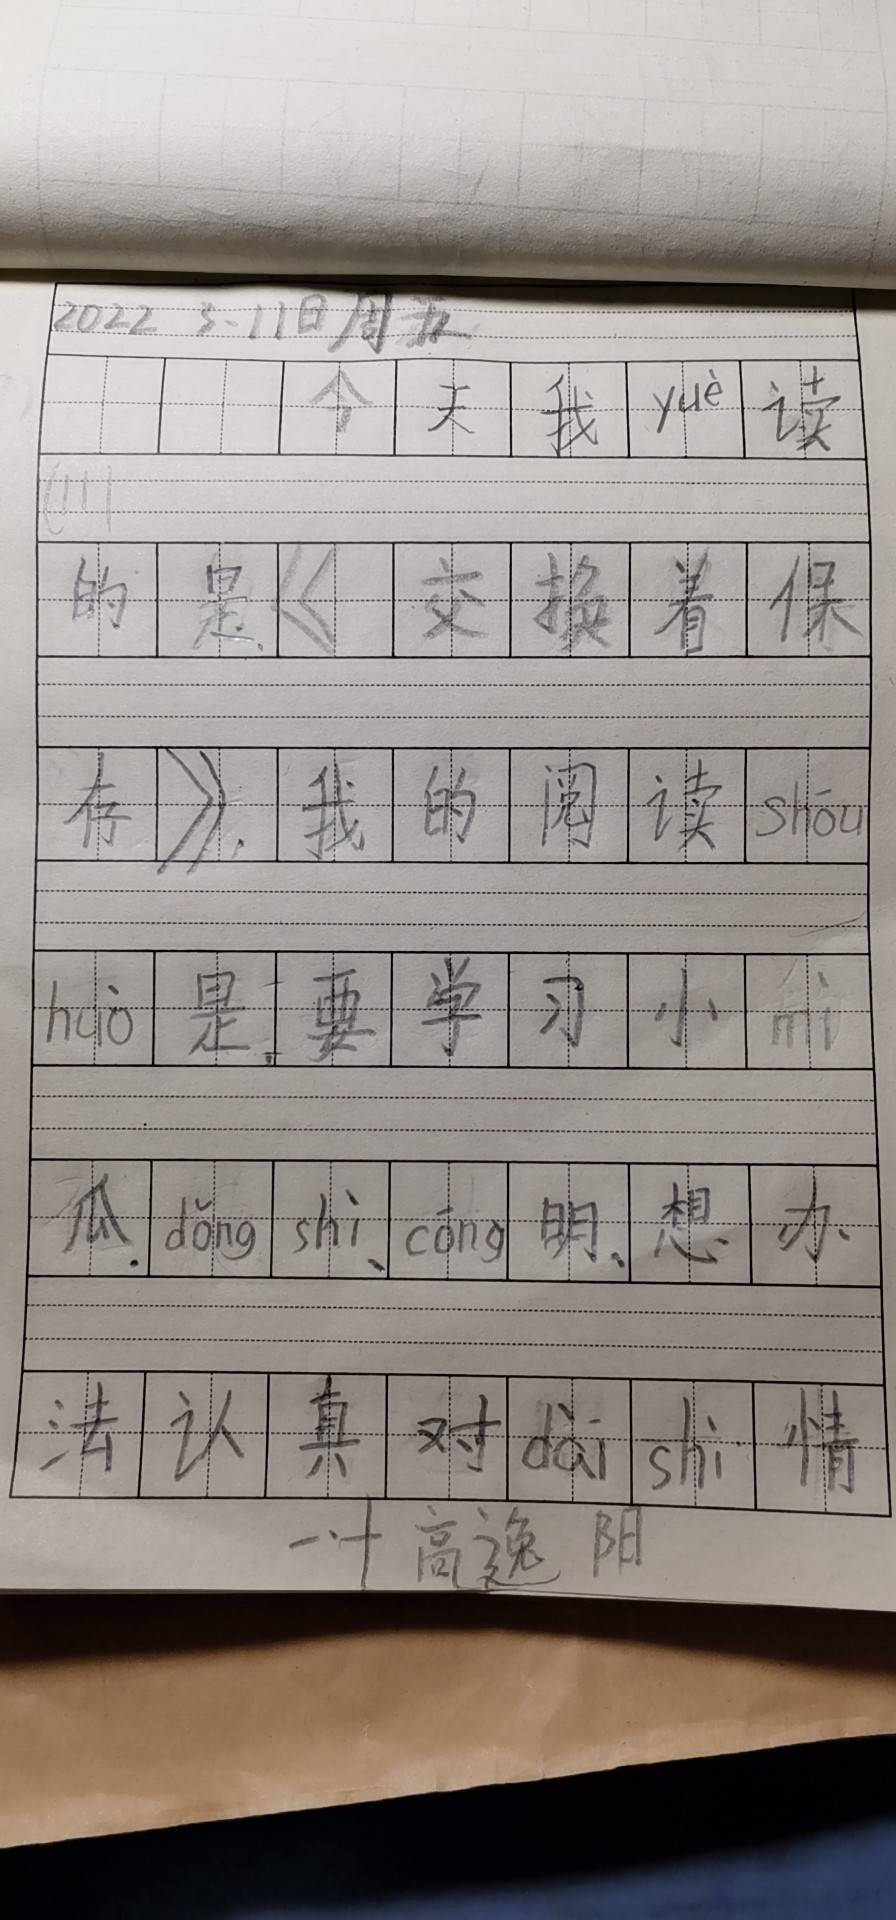 2022 3-11日周五
今天我yuè读
的是《交换着保
存》,我的阅读shōu
huò是:要学习小mì
瓜.dǒng shì、cōng明、想办
法认真对dài shì情
一.十高逸阳